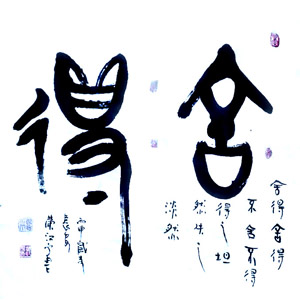 舍得
舍得舍得
不舍不得
得之坦
然失之
淡然
丙申